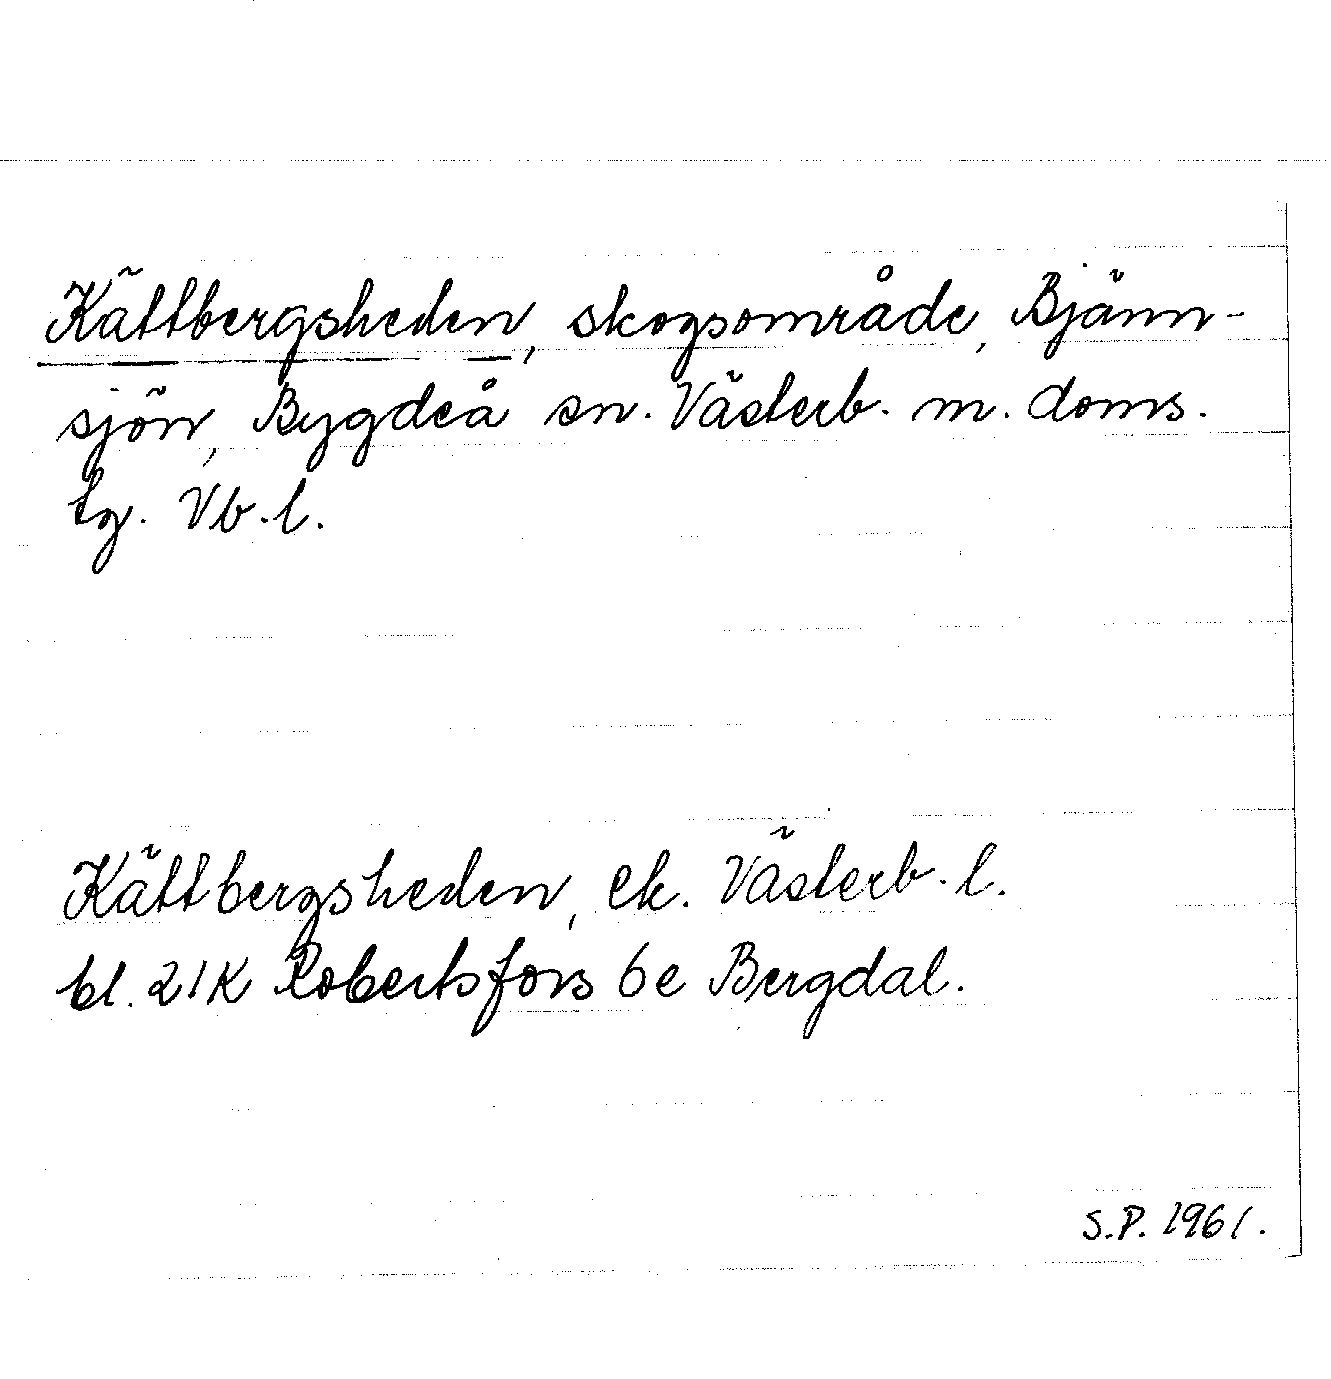 Kättbergsheden, skogsområde, Bjänn-
sjön, Bygdeå sn. Västerb. m. doms.
tg. Vb.l.
Kättbergsheden, ek. Västerb.l.
bl. 21K Robertsfors 6e Bergdal.
S.P. 1961.